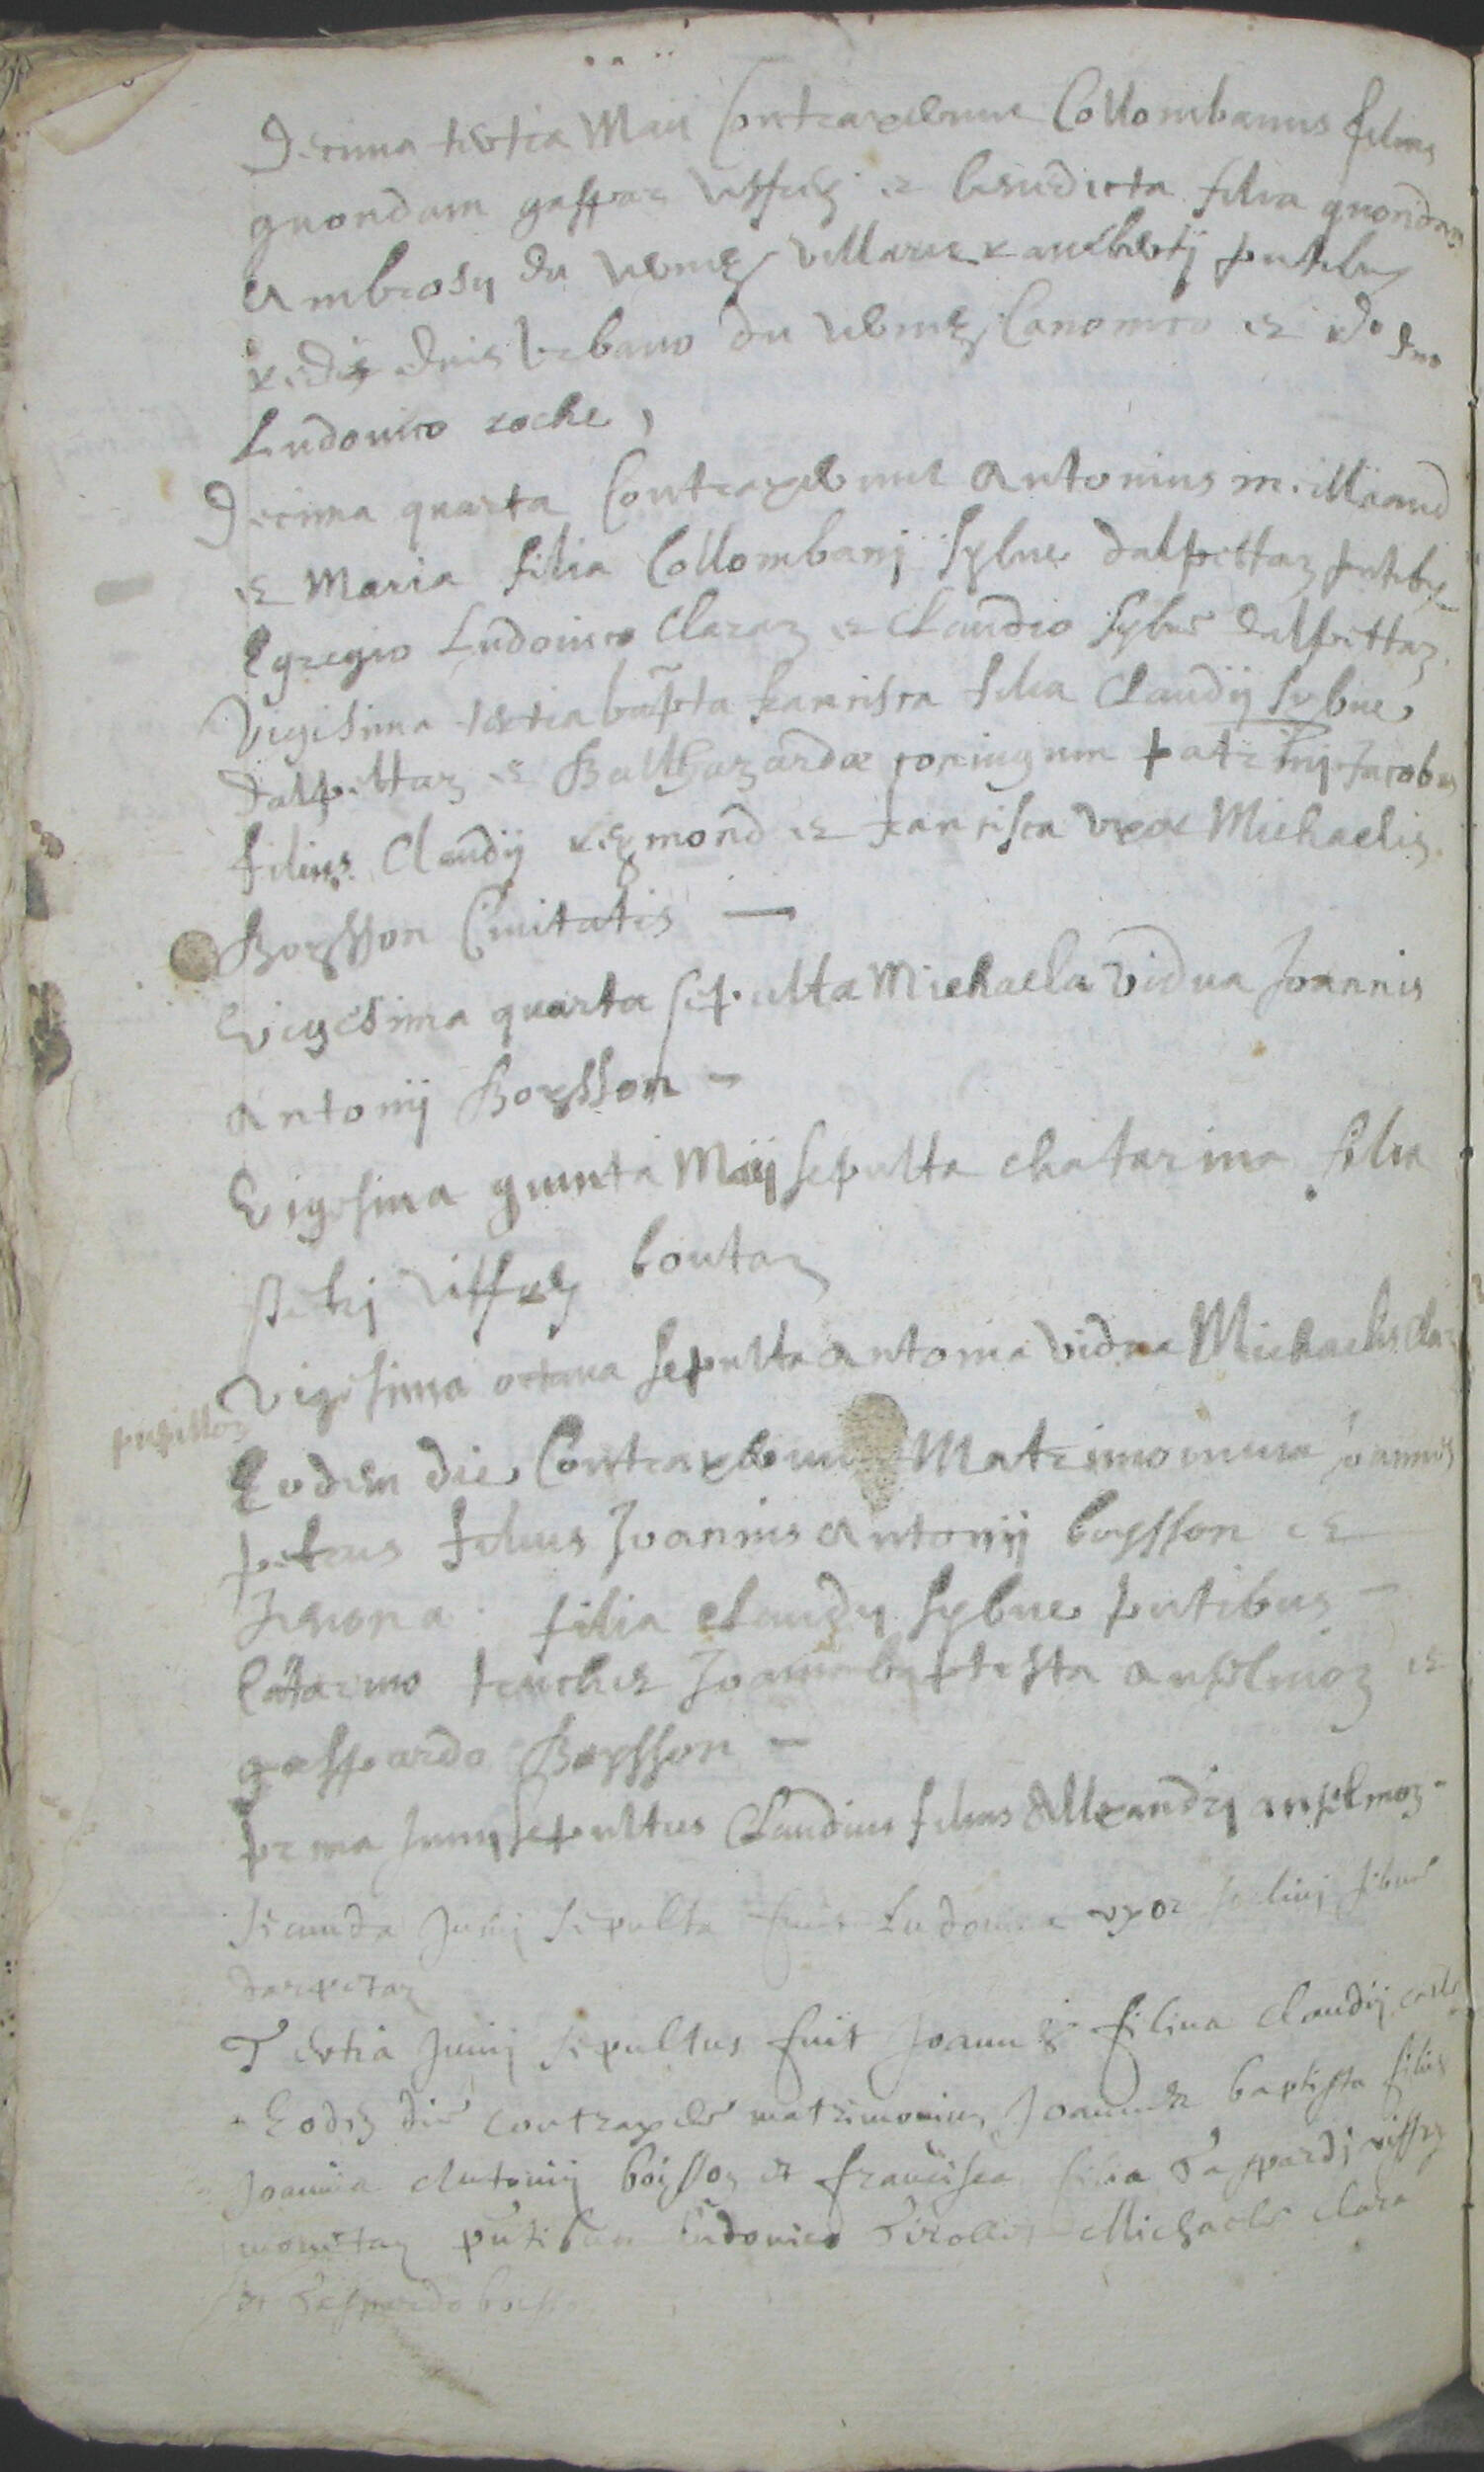 Decima tertia Maii Contraxerunt Collombanus filius
quondam gaspar Uffrey et benedicta filia quondam
Ambrosij du Verney villaris raimberti pntibus
rdis dnis Urbano du Verney Canonico et rdo dno
Ludovico roche,
Decima quarta Contraxerunt Antonius milliand
et Maria filia Collombanj Sylue dalpettaz pntibus
Egregio Ludovico Claraz et Claudio Sylue dalpettaz.
Vigesima tertia bapta francisca filia Claudij Sylue
dalpettaz et Balthazardæ coniugum patrinj Jacobus
filius Claudij reymond et francisca vxor Michaelis
Boysson Ciuitatis —
Vigesima quarta sepulta Michaela Vidua Joannis
Antonij Boysson -
Vigesima quinta Maij sepulta chatarina filia
petrj Viffrey boutaz
Vigesima octava sepulta antonia Vidua Michaelis claz
pupilloz
Eodem die Contraxerunt Matrimonium joannes
petrus filius Joannis Antonij boysson et
filia claudij Sylue pntibus -
Catarino truchet Joanne baptista anselmoz et
gaspardo Boysson -
prima Junij sepultus Claudius filius Allexandrj anselmoz -
Secunda Junij sepulta fuit Ludovica vxor siluе
darpetaz
Tertia Junij sepultus fuit Joannes filius claudij
Eodem die contraxere matrimonium Joannes baptista filius
Joannis Antonij boisson et francisca filia Gaspardj viffrey
monetaz pntibus ludovico Girollet Michaele clara
et Gaspardo boisson